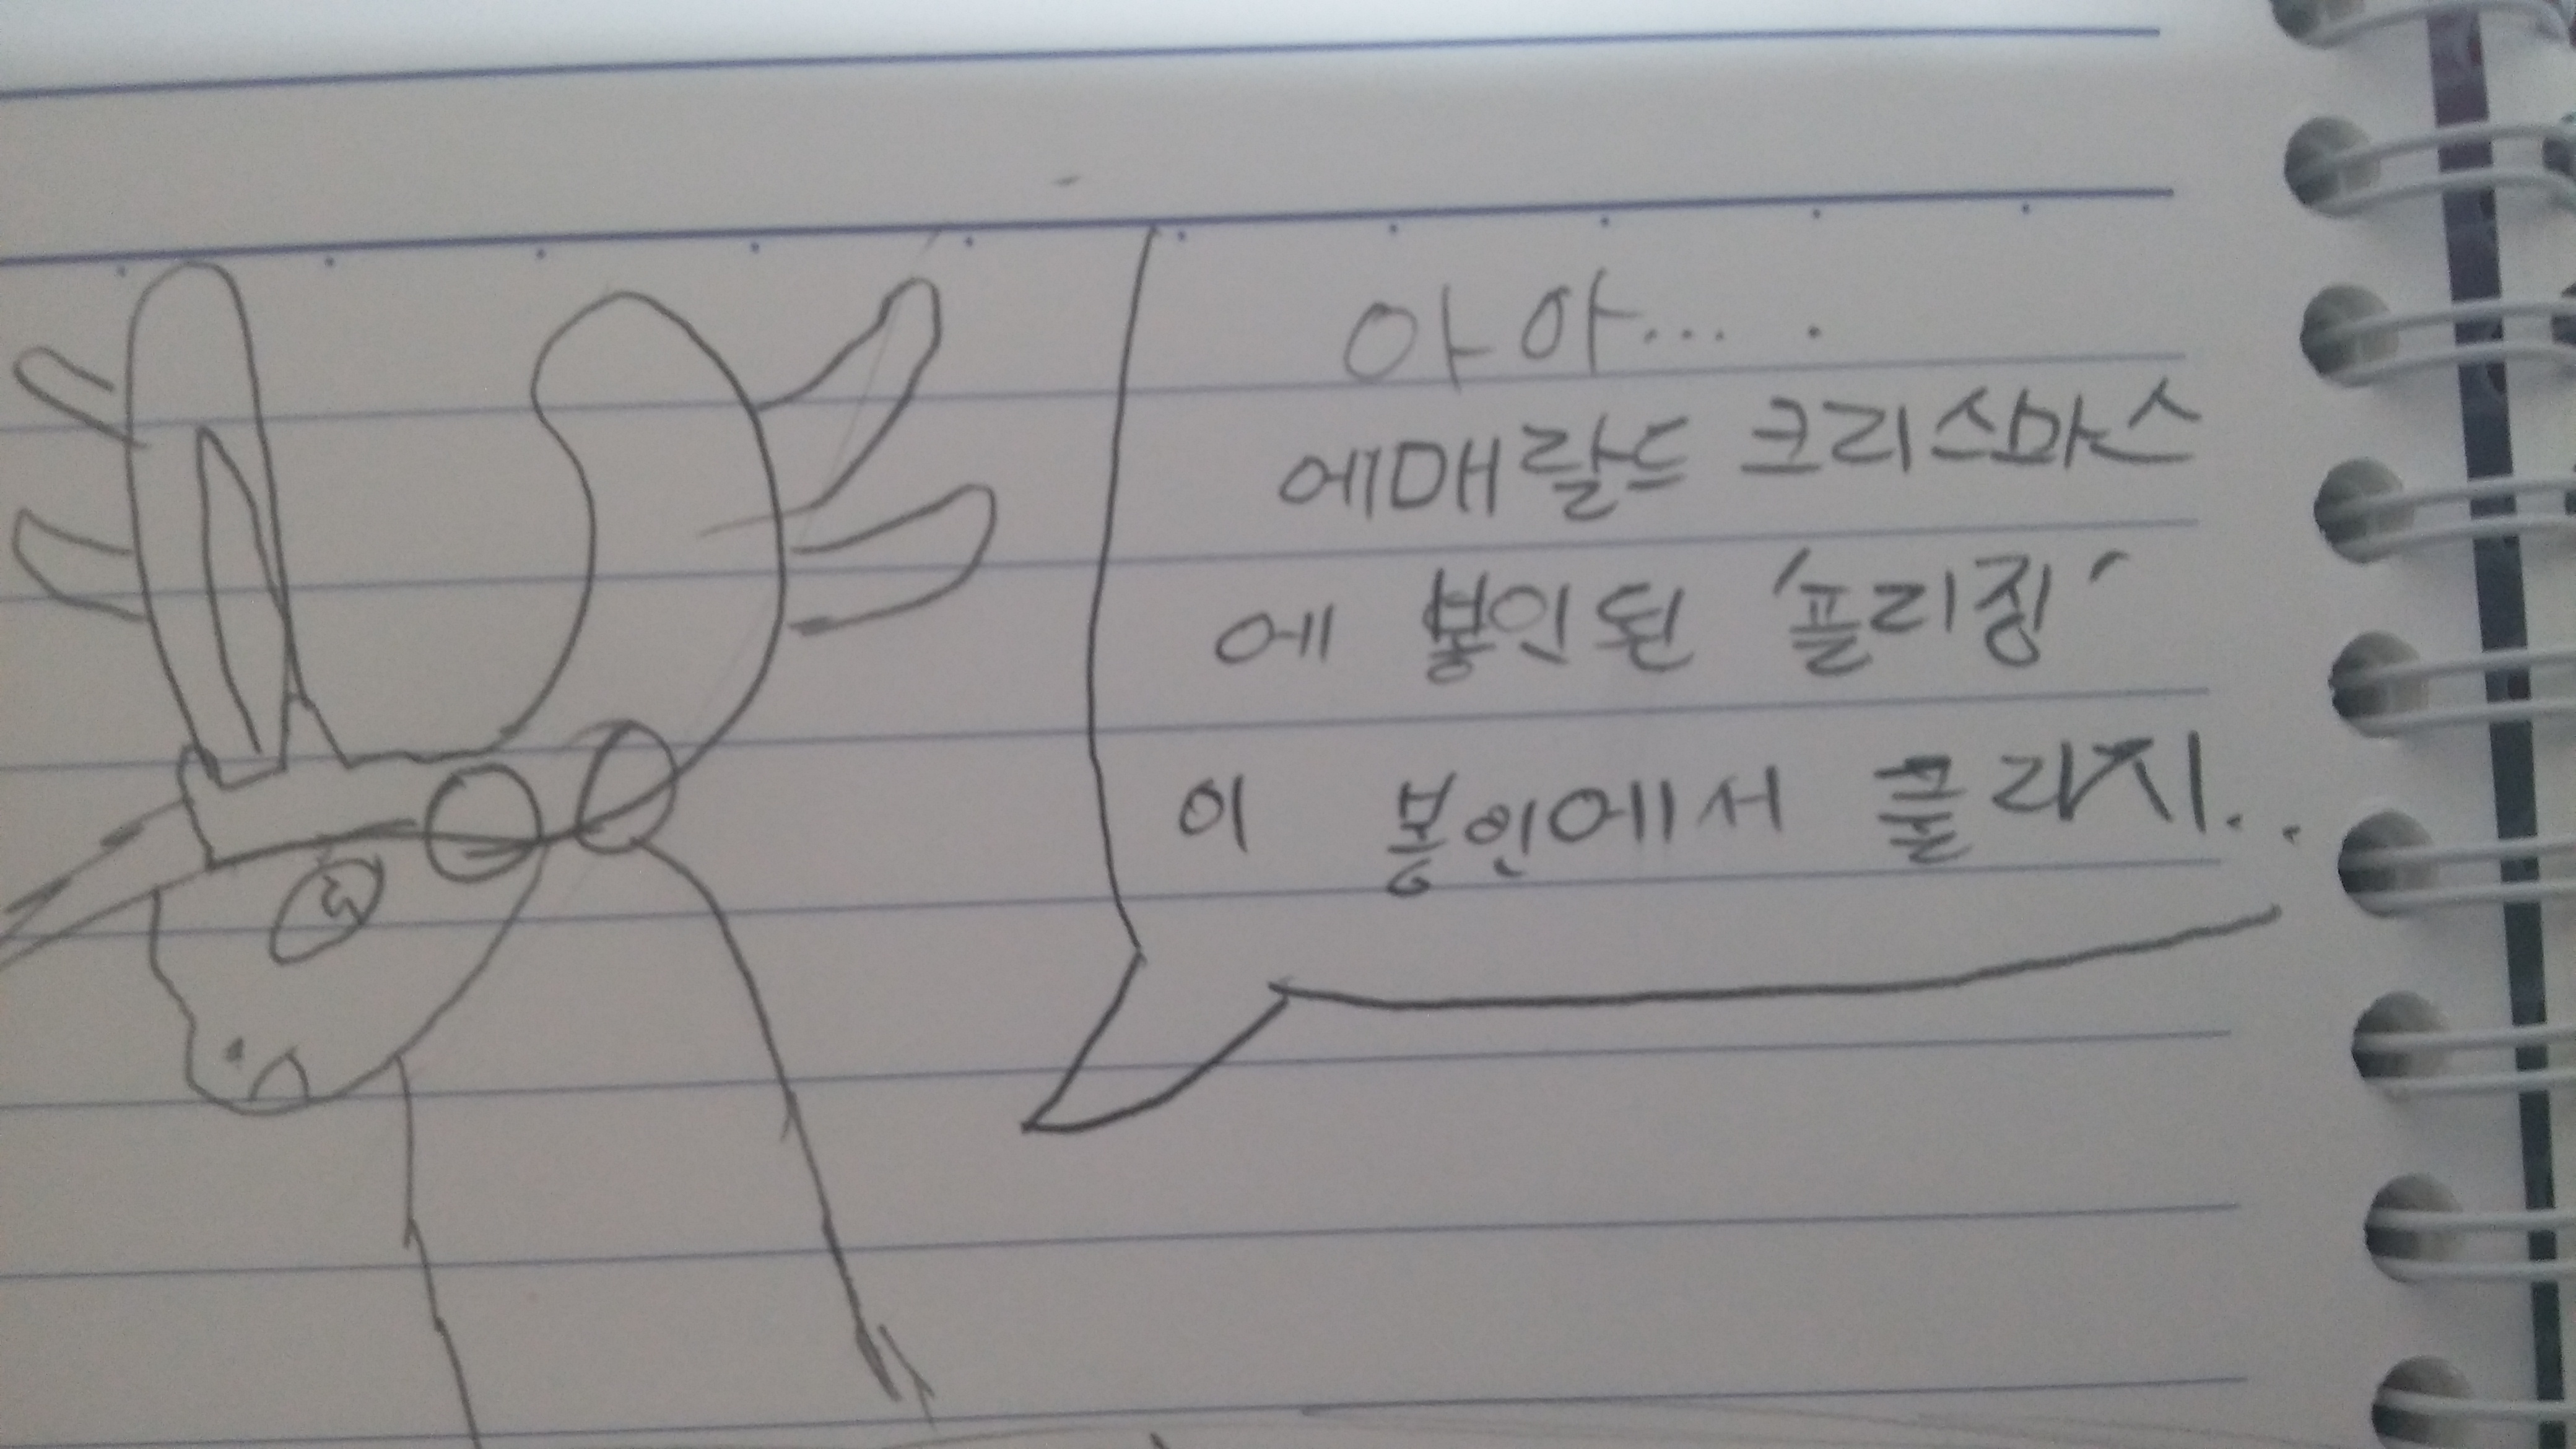 아아... .
에매랄드 크리스마스
에 봉인된 '플리징'
이 봉인에서 플리지..